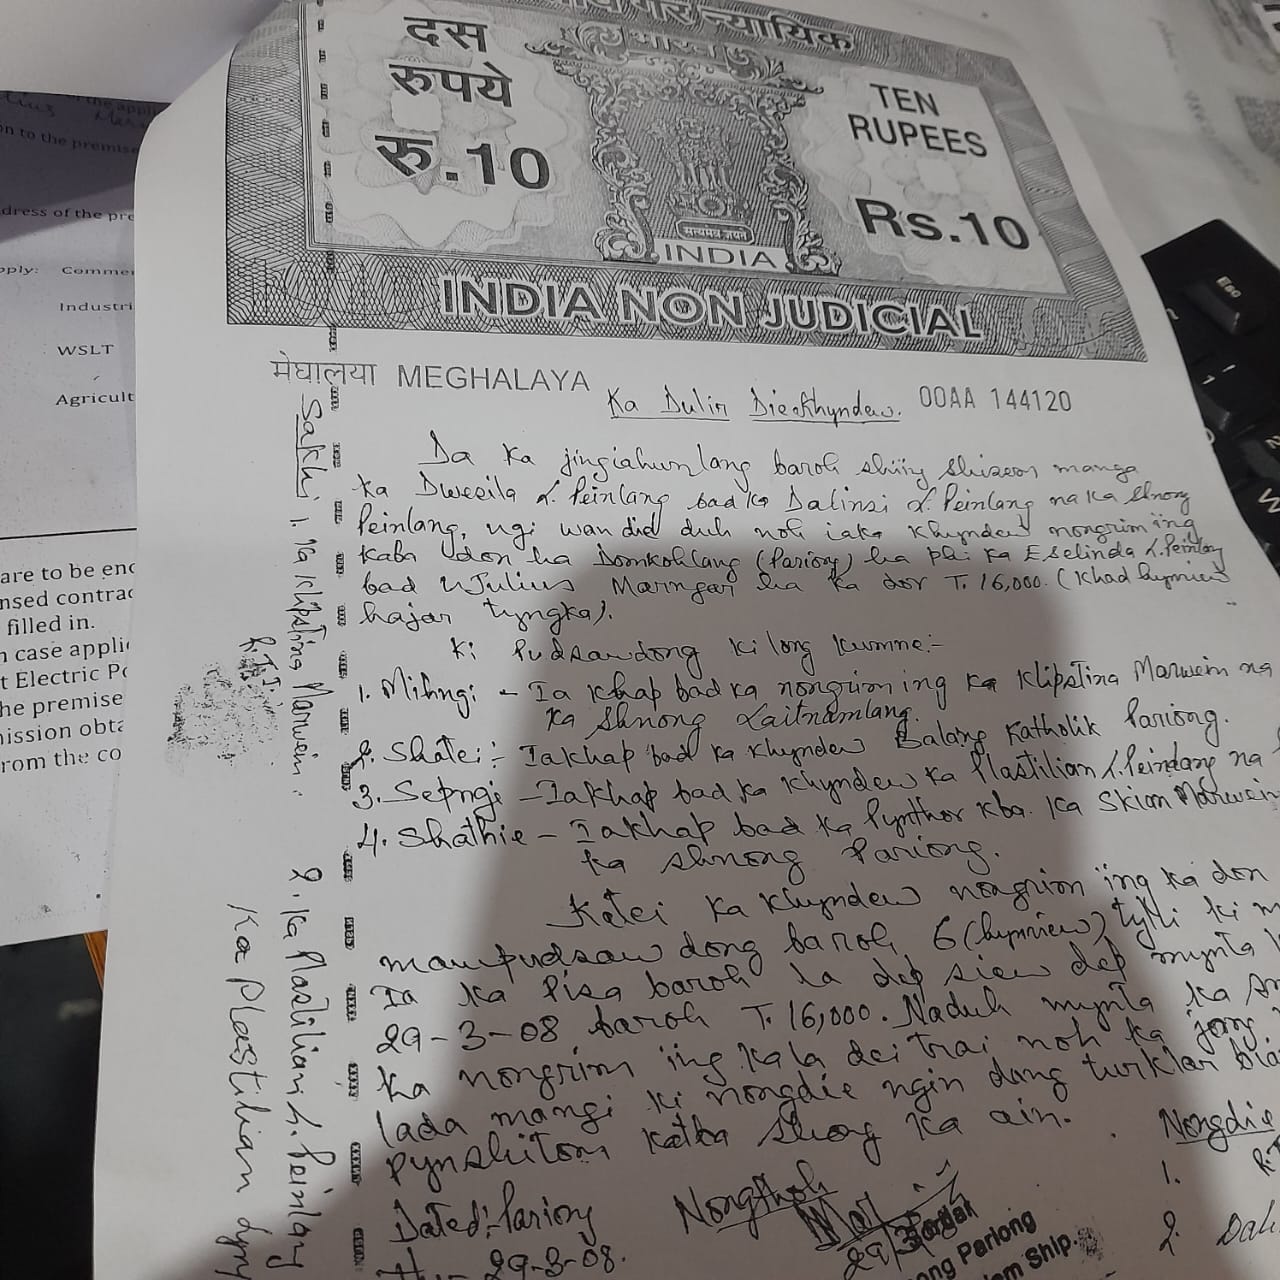 दस
रुपये
रु.10
न्यायिक
भारत
TEN
RUPEES
Rs.10
सत्यमेव जयते
INDIA
INDIA NON JUDICIAL
मेघालया MEGHALAYA
00AA 144120
Ka Dulir Dieekhyndew.
Da ka jingiahunlang baroh shiiy manga
ka Dweeila L. Peinlang bad ka Dalinsi L. Peinlang na ka Shnong
Peinlang, ngi wan did duh noh iaka Khyndew nongrim ing
kaba don ha Domkohlang (Pariong) ha phi ka Eselinda L. Peinlang
bad U Julius Marngar ha ka dor T. 16,000. (Khad hynriew
hajar tyngka).
Ki Pudsawdong ki long kumne:-
1. Mihngi - Ia khap bad ka nongrim ing ka Klipstina Marwein na
ka Shnong Laitnamlang.
2. Shatei :- Iakhap bad ka Khyndew Balang Katholik Pariong.
3. Sepngi - Iakhap bad ka Khyndew ka Plastilian L. Peinlang na
4. Shathie - Iakhap bad ka Pynthor kba. ka Skian Marwein
ka shnong Pariong.
Katei ka Khyndew nongrim ing ka don
mawpudsaw dong baroh 6 (hynriew) tylli ki m
Ia ka Pisa baroh la dep siew dep mynta
29-3-08 baroh T. 16,000. Naduh mynta ka
ka nongrim ing ka la dei trai noh ka jong
lada mangi ki nongdie ngin dang turklar
pynshitom katba shong ka ain.
Dated:- Pariong
29-3-08.
Nongthoh
29/3/08
Pariong
Ship.
Nongdie
1.
2. Dali
Sakhi 1. Ka Klipstina Marwein.
R.T.I.
2. Ka Plastilian L. Peinlang
Ka Plastilian
the appli
on to the premise
dress of the pre
pply: Comme
Industri
WSLT
Agricult
are to be enc
nsed contrac
filled in.
n case applic
t Electric Po
he premise
nission obta
rom the co
Esc